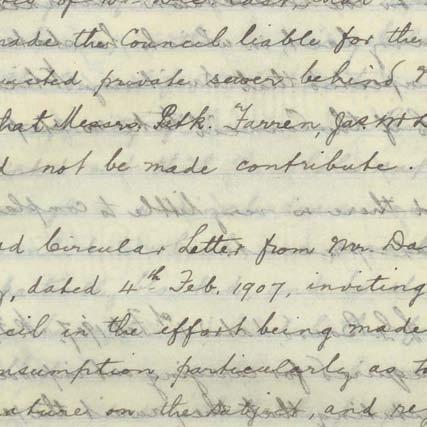 made the Council liable for the
private sewer behind
that Messrs Patk. Farren, Jas.
not be made contribute.
ed Circular Letter from Mr. Da
, dated 4th Feb. 1907, inviting
cil in the effort being made
nsumption, particularly as to
ature on the subject, and re